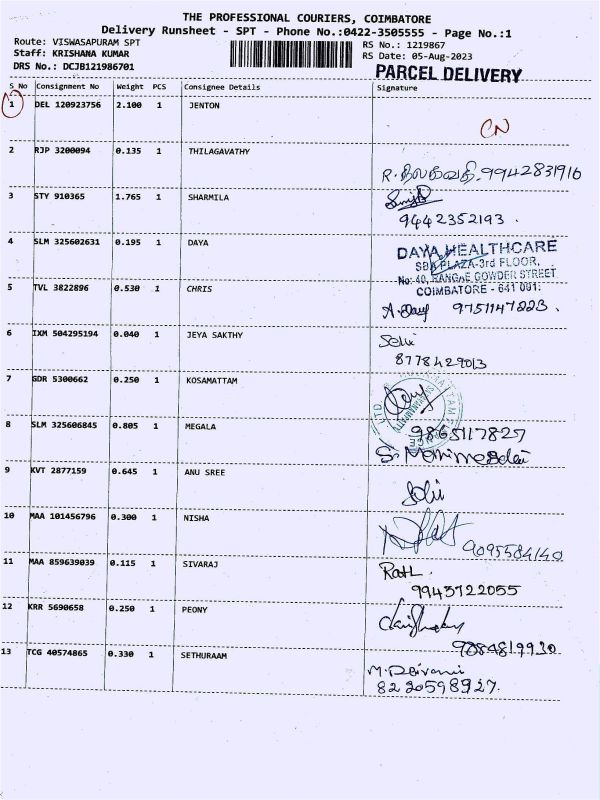 THE PROFESSIONAL COURIERS, COIMBATORE
Delivery Runsheet - SPT - Phone No.:0422-3505555 - Page No.:1
Route: VISWASAPURAM SPT
RS No.: 1219867
Staff: KRISHANA KUMAR
RS Date: 05-Aug-2023
DRS No.: DCJB121986701
PARCEL DELIVERY
S No Consignment No Weight PCS Consignee Details Signature
1 DEL 120923756 2.100 1 JENTON
CN
2 RJP 3200094 0.135 1 THILAGAVATHY
R. திலகவதி. 9942831916
3 STY 910365 1.765 1 SHARMILA
9442352193.
4 SLM 325602631 0.195 1 DAYA
DAYA HEALTHCARE
SBA PLAZA-3rd FLOOR,
No: 40, RANGAE GOWDER STREET
COIMBATORE - 641 001.
5 TVL 3822896 0.530 1 CHRIS
9751147223.
6 IXM 504295194 0.040 1 JEYA SAKTHY
Selvi
8778429013
7 GDR 5300662 0.250 1 KOSAMATTAM
8 SLM 325606845 0.805 1 MEGALA
9865117827
9 KVT 2877159 0.645 1 ANU SREE
10 MAA 101456796 0.300 1 NISHA
9095584140
11 MAA 859639039 0.115 1 SIVARAJ
9943722055
12 KRR 5690658 0.250 1 PEONY
9884819930.
13 TCG 40574865 0.330 1 SETHURAAM
M. Deivanai
8220598927.